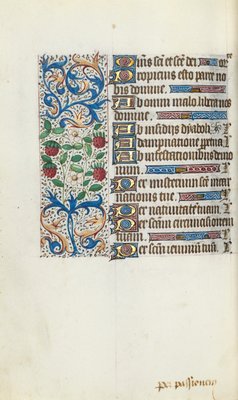 Omnes sci et sce dei
Propicius esto parce no
bis domine.
Ab omni malo libera nos
domine.
Ab insidijs dyaboli
A dampnatione perpetua
Ab infestationibus demo
num
Per misterium sce incar
nationis tue.
Per natiuitate tuam.
Per scam circuncisionem
tuam.
Per scm ieiunium tuu.
per passionem